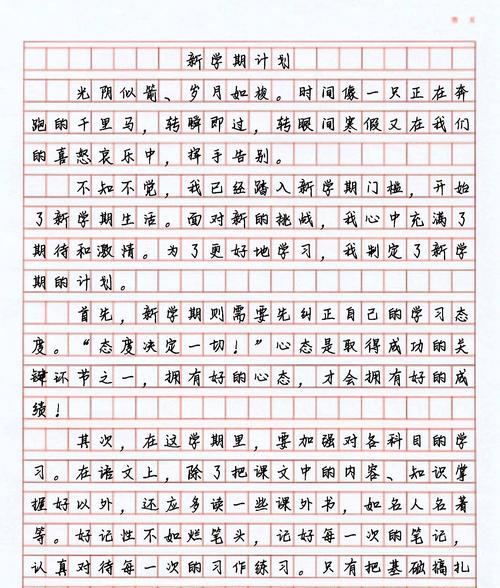 新学期计划
光阴似箭、岁月如梭。时间像一只正在奔
跑的千里马，转瞬即过，转眼间寒假又在我们
的喜怒哀乐中，挥手告别。
不知不觉，我已经踏入新学期门槛，开始
了新学期生活。面对新的挑战，我心中充满了
期待和激情。为了更好地学习，我制定了新学
期的计划。
首先，新学期则需要先纠正自己的学习态
度。“态度决定一切！”心态是取得成功的关
键环节之一，拥有好的心态，才会拥有好的成
绩！
其次，在这学期里，要加强对各科目的学
习。在语文上，除了把课文中的内容、知识掌
握好以外，还应多读一些课外书，如名人名著
等。好记性不如烂笔头，记好每一次的笔记，
认真对待每一次的习作练习。只有把基础搞扎